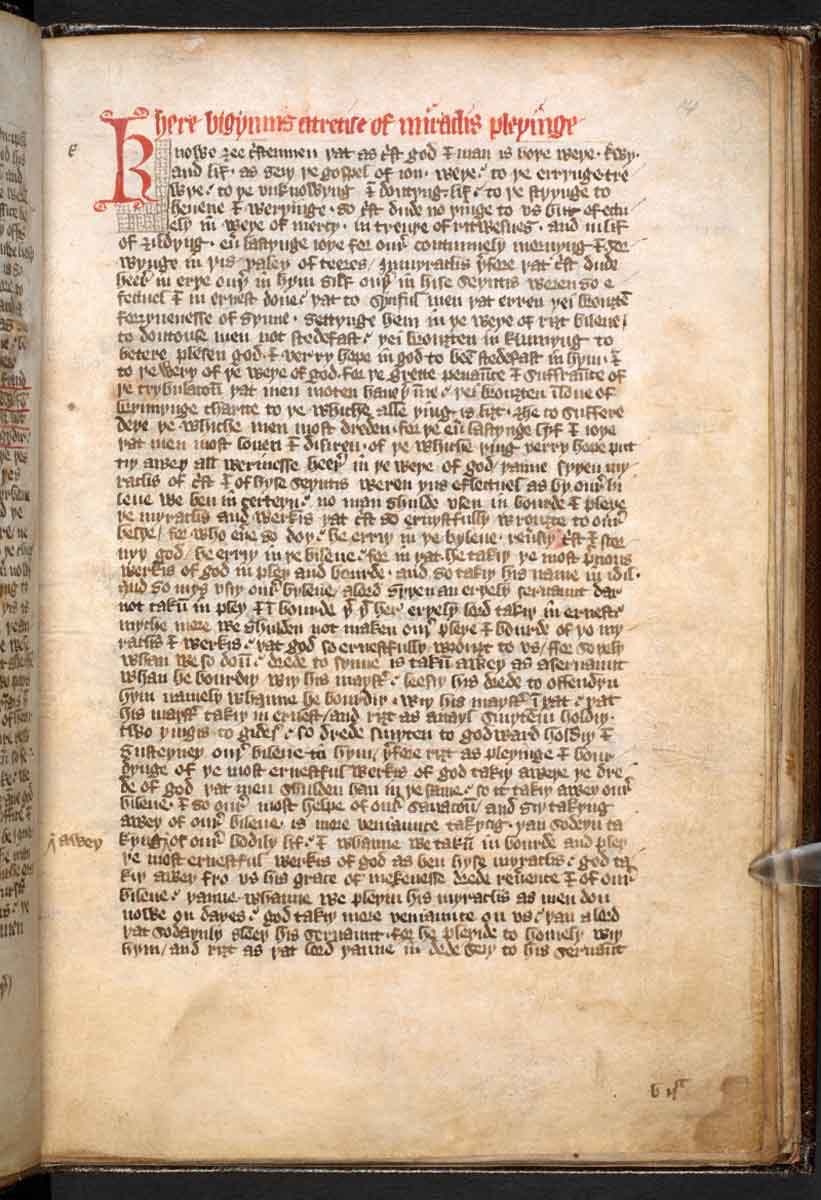 here bigynnis a tretise of mirаclis pleyinge
Knowe ȝee cristen men þat as crist god & man is boþe weye · trewþ ·
and lif · as seiþ þe gospel of ion · weye · to þe erryng · tre
wþe · to þe unknowyng & doutyng · lif · to þe stryynge to
hevene & weryinge · so crist dude no þinge to us but effectu
ely in weye of mercy · in treuþe of ritwesnes · and in lif
of ȝildyng · everlastynge joye for oure contunuely mornyng & sor
wynge in þis valey of teeres / myraclis þerfore þat crist dude
heere in erþe ouþer in hym silf ouþer in hise seyntis weren so e
fectuel & in ernest done · þat to synful men þat erren þei brouȝten
forȝyvenesse of synne · settynge hem in þe weye of riȝt bileve /
to doutouse men not stedefast · þei brouȝten in kunnyng to
betere plesen god · & verry hope in god to been stedefast in hym · &
to þe wery of þe weye of god · for þe grette penaunce & suffraunce of
þe trybulacoun þat men moten have þerinne · þei brouȝten in love of
brynnynge charite to þe whiche alle þing is liȝt · ȝhe to suffere
deþe þe whiche men most dreden · for þe everlastynge lyf & joye
þat men most loven & disiren · of þe whiche þing verry hope put
tiþ awey all werinesse heere in þe weye of god / þanne syþen my
raclis of crist & of hyse seyntis weren þus effectuel as by oure bi
leve we ben in certeyn · no man shulde usen in bourde & pleye
þe myraclis and werkis þat crist so ernystfully wrouȝte to oure
helþe / for who evere so doþ · he erriþ in þe byleve · reversiþ crist & scor
nyþ god / he erriþ in þe bileve · for in þat he takiþ þe most precious
werkis of god in pley and bourde · and so takiþ his name in idil ·
and so mys usiþ oure byleve / a lord syþen an erþely servaunt dar
not takun in pley & in bourde þat þat her erþely lord takiþ in ernest ·
myche more we shulden not maken oure pleye & bourde of þo my
raclis & werkis · þat god so ernestfully wrouȝt to us / for soþely
whan we so doun · drede to synne is takun awey as a servaunt
whan he bourdiþ wiþ his mayster · leesiþ his drede to offendyn
hym namely whanne he bourdiþ · wiþ his mayster in þat · þat
his mayster takiþ in ernest / and riȝt as a nayl smyten in holdiþ ·
two þingis to gidere · so drede smyten to godward holdiþ &
susteyneþ oure bileve to hym / þerfore riȝt as pleyinge & bour
dynge of þe most ernestful werkis of god takiþ aweye þe dre
de of god þat men shulden han in þe same · so it takiþ awey oure
bileve · & so oure most helpe of oure savacoun / and siþ takyng
awey of oure bileve · is more venjaunce takyng · þan sodeyn ta
kyng of oure bodily lif · & whanne we takun in bourde and pley
awey
þe most ernestful werkis of god as ben hyse myraclis · god ta
kiþ awey fro us his grace of mekenesse drede reverence & of oure
bileve · þanne whanne we pleyin his myraclis as men don
nowe on dayes · god takiþ more venjaunce on us · þan a lord
þat sodaynly sleeþ his servaunt · for he pleyide to homely wiþ
hym / and riȝt as þat lord þanne in dede seiþ to his servaunt
14